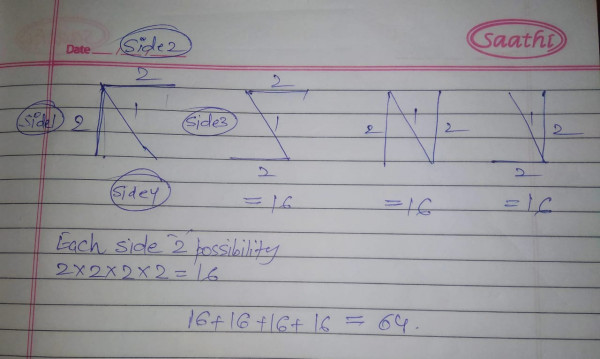 Date Side2
Saathi
2 2
Side1 2 1 Side3 1 2 1 2 1 2
Side4 2 2
=16 =16 =16
Each side 2 possibility
2×2×2×2=16
16+16+16+16 = 64.